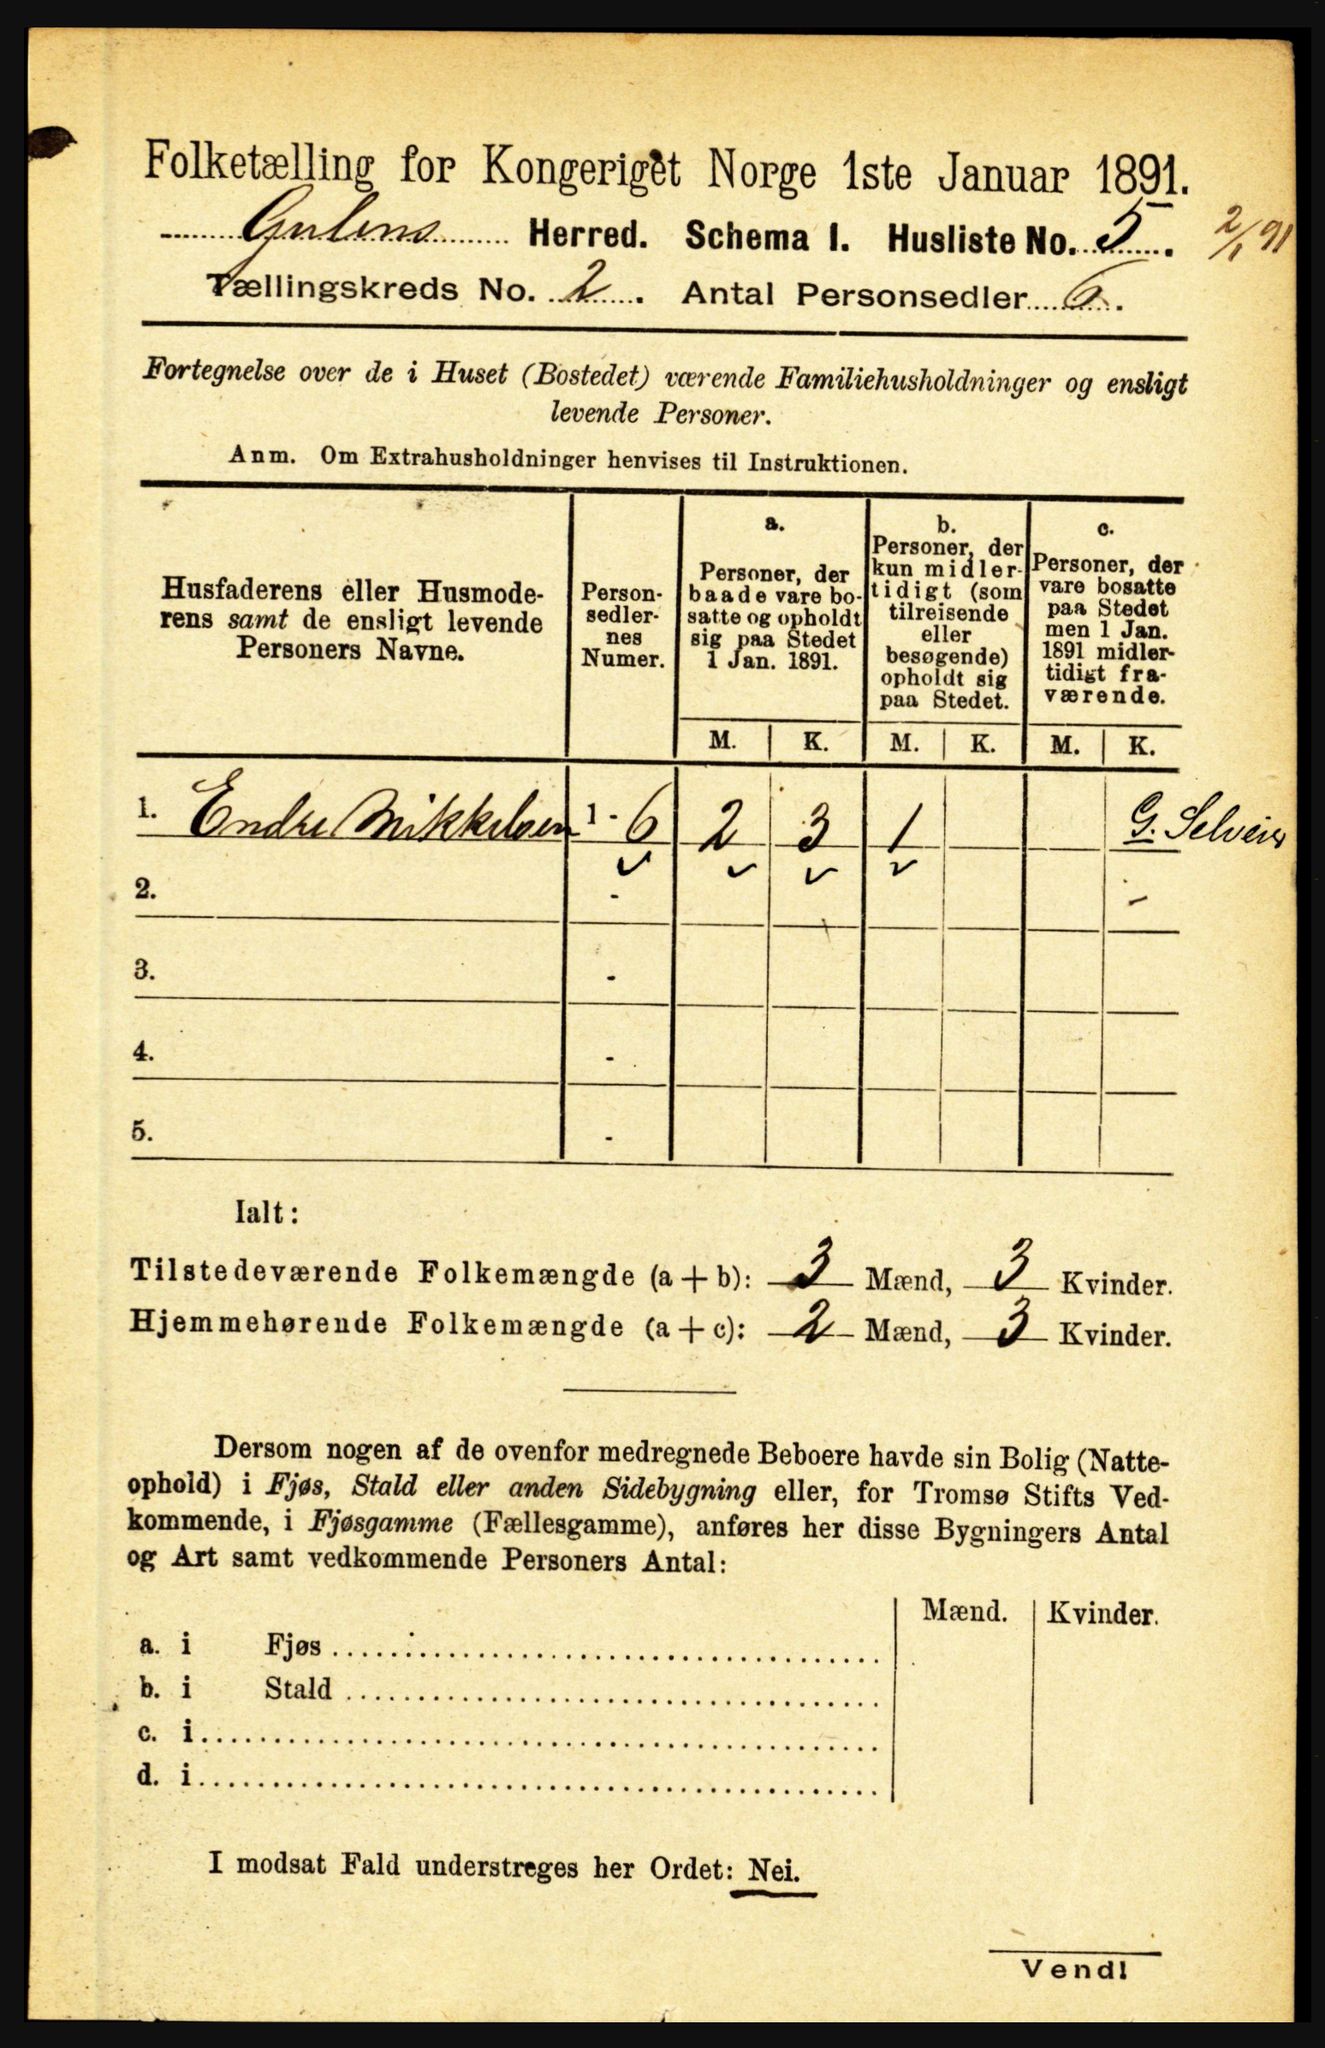 Folketælling for Kongeriget Norge 1ste Januar 1891.
Gulens Herred. Schema I. Husliste No. 5.
2/1 91
Tællingskreds No. 2. Antal Personsedler 6.
Fortegnelse over de i Huset (Bostedet) værende Familiehusholdninger og ensligt
levende Personer.
Anm. Om Extrahusholdninger henvises til Instruktionen.
Husfaderens eller Husmode-
rens samt de ensligt levende
Personers Navne.
Person-
sedler-
nes
Numer.
a.
Personer, der
baade vare bo-
satte og opholdt
sig paa Stedet
1 Jan. 1891.
b.
Personer, der
kun midler-
tidigt (som
tilreisende
eller
besøgende)
opholdt sig
paa Stedet.
c.
Personer, der
vare bosatte
paa Stedet
men 1 Jan.
1891 midler-
tidigt fra-
værende.
M. K. M. K. M. K.
1. Endre Mikkelsen 1 - 6 2 3 1 G. Selveier
2. - -
3. -
4. -
5. -
Ialt:
Tilstedeværende Folkemængde (a + b): 3 Mænd, 3 Kvinder.
Hjemmehørende Folkemængde (a + c): 2 Mænd, 3 Kvinder.
Dersom nogen af de ovenfor medregnede Beboere havde sin Bolig (Natte-
ophold) i Fjøs, Stald eller anden Sidebygning eller, for Tromsø Stifts Ved-
kommende, i Fjøsgamme (Fællesgamme), anføres her disse Bygningers Antal
og Art samt vedkommende Personers Antal:
Mænd. Kvinder.
a. i Fjøs
b. i Stald
c. i
d. i
I modsat Fald understreges her Ordet: Nei.
Vend!